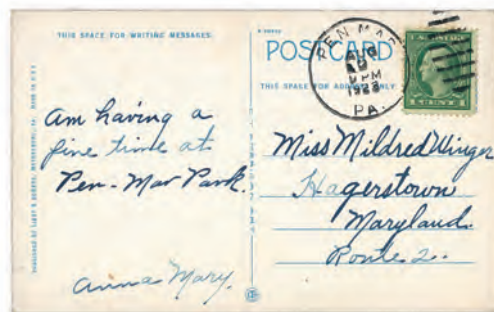 THIS SPACE FOR WRITING MESSAGES.
POSTCARD
THIS SPACE FOR ADDRESS ONLY
PEN MAR
AUG
PM
PA.
Am having a
fine time at
Pen-Mar Park.
Anna Mary.
Miss Mildred Winger
Hagerstown
Maryland.
Route 2.